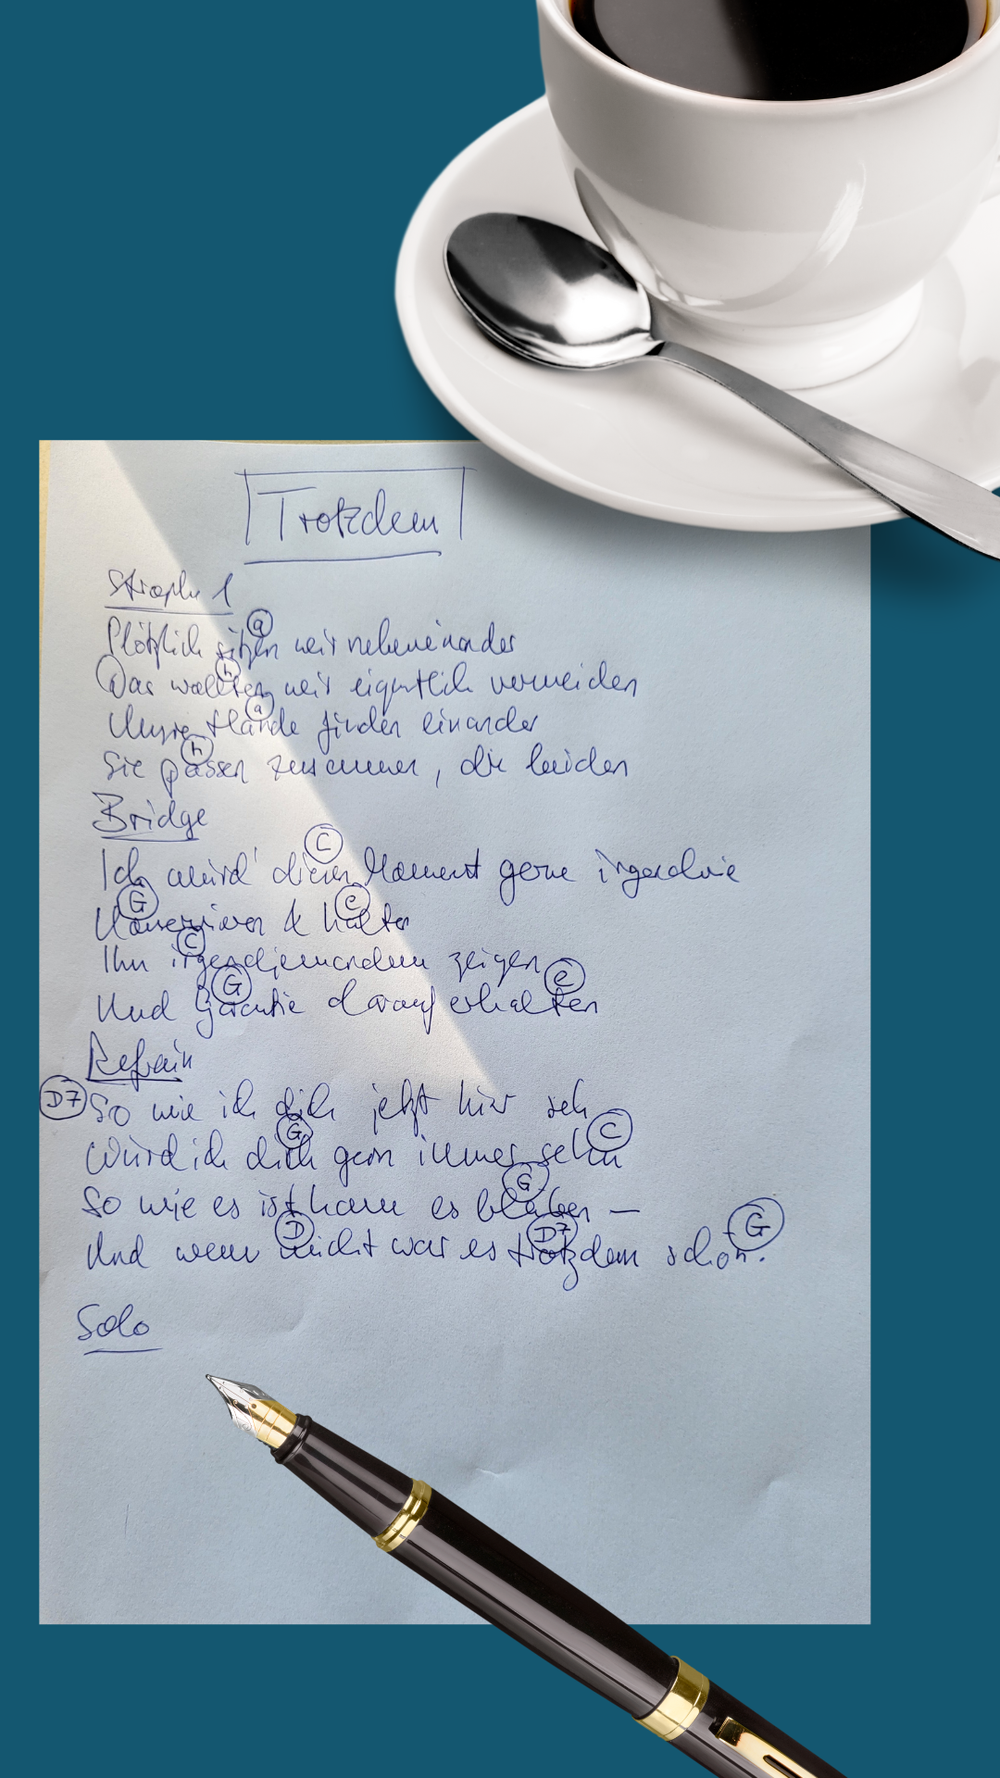 Trotzdem
Strophe 1
a
Plötzlich sitzen wir nebeneinander
h
Das wollten wir eigentlich vermeiden
a
Unsre Hände finden einander
h
Sie passen zusammen, die beiden
Bridge
C
Ich würd' diesen Moment gerne irgendwie
G e
Konservieren & halten
C
Ihn irgendjemandem zeigen
G e
Und Garantie darauf erhalten
Refrain
D7 So wie ich dich jetzt hier seh
G C
Würd ich dich gern immer sehn
G
So wie es ist kann es bleiben –
D D7 G
Und wenn nicht war es trotzdem schön.
Solo